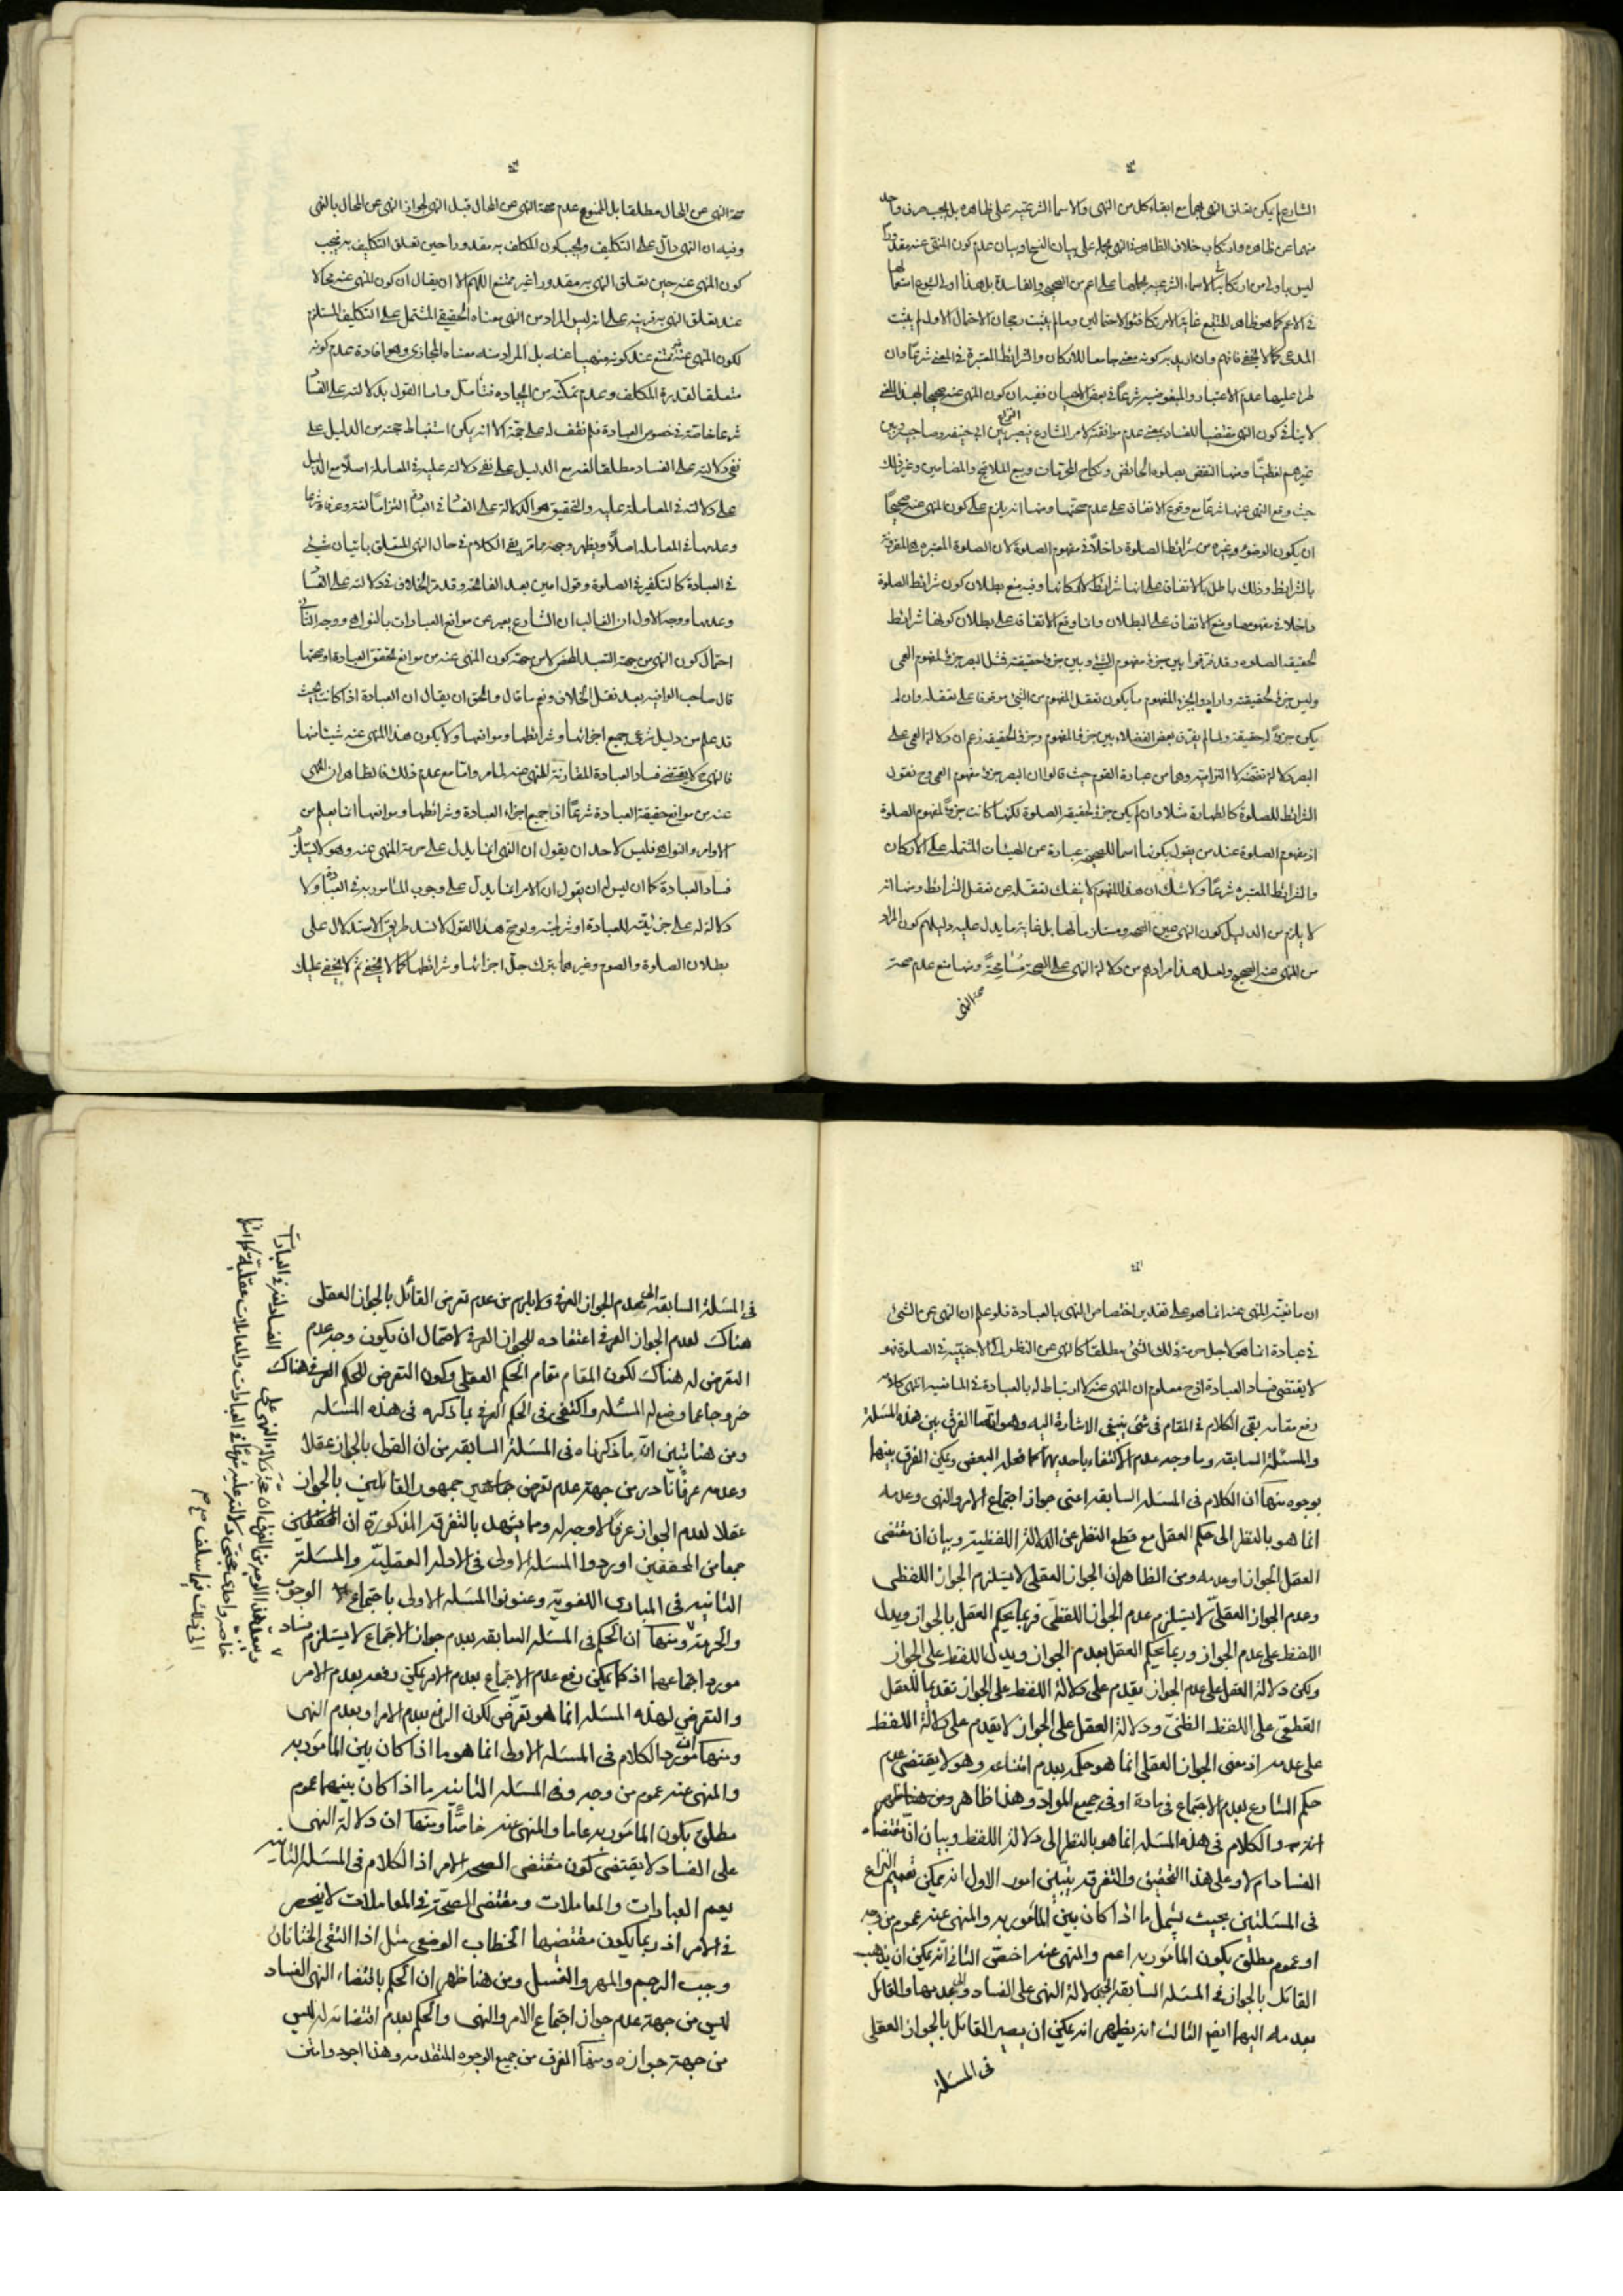 الشارع لم يكن تعلق النهى بهما مع ابقاء كل من النهى والاسماء الشرعية على ظاهره بل يجب صرف واحد
منهما عن ظاهره وارتكاب خلاف الظاهر فى النهى بحمله على بيان النسخ او بيان عدم كون المنهى عنه مقدورا
ليس باولى من ارتكابه فى الاسماء الشرعية بحملها على اعم من الصحيح والفاسدة بل هذا اولى لشيوع استعمالها
فى الاعم كما هو ظاهر للمتتبع غاية الامر تكافؤ الاحتمالين وما لم يثبت رجحان الاحتمال الاول لم يثبت
المدعى كما لا يخفى فافهم وان اريد به كونه معنى جامعا للاركان والشرائط المعتبرة فى المعنى شرعا وان
طرأ عليها عدم الاعتبار والمبغوضية شرعا فى بعض الاحيان ففيه ان كون المنهى عنه صحيحا بهذا المعنى
لا ينافى كون النهى مقتضيا للفساد بمعنى عدم موافقته لامر الشارع فيصير النزاع بين ابى حنيفه وصاحبيه وبين
غيرهم لفظيا ومنها النقض بصلوة الحائض ونكاح المحرمات وبيع الملاقيح والمضامين وغير ذلك
حيث وقع النهى عنها شرعا مع وقوع الاتفاق على عدم صحتها ومنها انه يلزم على كون المنهى عنه صحيحا
ان يكون الوضوء وغيره من شرائط الصلوة داخلا فى مفهوم الصلوة لان الصلوة المعتبرة هى المقرونة
بالشرائط وذلك باطل بالاتفاق على انها شرائط لا اركانها وفيه منع بطلان كون شرائط الصلوة
داخلا فى مفهومها ومنع الاتفاق على البطلان وانما وقع الاتفاق على بطلان كونها شرائط
لحقيقه الصلوه وقد فرقوا بين جزء مفهوم الشئ وبين جزء حقيقته فمثل البصر جزء لمفهوم العمى
وليس جزء لحقيقته وارادوا بجزء المفهوم ما يكون تعقل المفهوم من الشئ موقوفا على تعقله وان لم
يكن جزء لحقيقته ولما لم يفرق بعض الفضلاء بين جزء المفهوم وجزء الحقيقه زعم ان دلالة العمى على
البصر دلالة تضمنية لا التزامية وهما من عبارة القوم حيث قالوا ان البصر جزء مفهوم العمى وح نقول
الشرائط للصلوة كالطهارة مثلا وان لم يكن جزء لحقيقة الصلوة لكنها كانت جزء لمفهوم الصلوة
اذ مفهوم الصلوة عند من يقول بكونها اسما للصحيحة عبارة عن الهيئات المشتملة على الاركان
والشرائط المعتبره شرعا ولا شك ان هذا المفهوم لا ينفك تعقله عن تعقل الشرائط ومنها انه
لا يلزم من الدليل كون النهى عين الصحه ومستلزما لها بل غاية ما يدل عليه دليلهم كون المراد
من المنهى عنه الصحيح ولعل هذا مرادهم من دلالة النهى على الصحة مسامحة ومنها منع عدم صحة
صحة النهى
صحة النهى عن المحال مطلقا بل الممنوع عدم صحة النهى عن المحال قبل النهى لجواز النهى عن المحال بالنهى
وفيه ان النهى دال على التكليف ويجب كون المكلف به مقدورا حين تعلق التكليف به فيجب
كون المنهى عنه حين تعلق النهى به مقدورا غير ممتنع اللهم الا ان يقال ان كون المنهى عنه محالا
عند تعلق النهى به قرينة على انه ليس المراد من النهى معناه الحقيقى المشتمل على التكليف المستلزم
لكون المنهى عنه غير ممتنع عند كونه منهيا عنه بل المراد منه معناه المجازى وهو افادة عدم كونه
متعلقا لقدرة المكلف وعدم تمكنه من ايجاده فتأمل واما القول بدلالته على الفساد
شرعا خاصة فى خصوص العبادة فلم نقف له على حجة الا انه يمكن استنباط حجته من الدليل على
نفى دلالته على الفساد مطلقا لغة مع الدليل على نفى دلالته عليه فى المعاملة اصلا مع الدليل
على دلالته فى المعاملة عليه والتحقيق هو الدلالة على الفساد فى العبادة التزاما لغة وعرفا وشرعا
وعدمها فى المعامله اصلا ويظهر وجهه مما مر بقى الكلام فى حال النهى المتعلق باتيان شئ
فى العبادة كالتكفير فى الصلوة وقول امين بعد الفاتحة وقد مر الخلاف فى دلالته على الفساد
وعدمها ووجه الاول ان الغالب ان الشارع يعبر عن موانع العبادات بالنواهى ووجه الثانى
احتمال كون النهى من جهة التعبد المحض لا من جهة كون المنهى عنه من موانع تحقق العبادة او صحتها
قال صاحب الوافيه بعد نقل الخلاف ونعم ما قال والحق ان يقال ان العبادة اذا كانت بحيث
قد علم من دليل شرعى جميع اجزائها وشرائطها وموانعها ولا يكون هذا المنهى عنه شيئا منها
فالنهى لا يقتضى فساد العبادة المقارنة للمنهى عنه لما مر واما مع عدم ذلك فالظاهر ان المنهى
عنه من موانع حقيقة العبادة شرعا اذ جميع اجزاء العبادة وشرائطها وموانعها انما يعلم من
الاوامر والنواهى فليس لاحد ان يقول ان النهى انما يدل على حرمة المنهى عنه وهو لا يستلزم
فساد العبادة كما ان ليس له ان يقول ان الامر انما يدل على وجوب المأمور به فى العبادة ولا
دلالة له على جزئيته للعبادة او شرطيته ولو صح هذا القول لانسد طريق الاستدلال على
بطلان الصلوة والصوم وغيرهما بترك جل اجزائها وشرائطها كما لا يخفى ثم لا يخفى عليك
ان مانعية المنهى عنه انما هو على تقدير اختصاص النهى بالعبادة فلو علم ان النهى عن الشئ
فى عبادة انما هو لاجل حرمة ذلك الشئ مطلقا كالنهى عن النظر الى الاجنبية فى الصلوة فهو
لا يقتضى فساد العبادة اذ ح معلوم ان المنهى عنه لا ارتباط له بالعبادة فى المانعية انتهى كلامه
رفع مقامه بقى الكلام فى المقام فى شئ ينبغى الاشارة اليه وهو انه ما الفرق بين هذه المسئلة
والمسئلة السابقه وما وجه عدم الاكتفاء باحديهما كما فعله البعض ويمكن الفرق بينهما
بوجوه منها ان الكلام فى المسئله السابقه اعنى جواز اجتماع الامر والنهى وعدمه
انما هو بالنظر الى حكم العقل مع قطع النظر عن الدلالة اللفظية وبيان ان مقتضى
العقل الجواز او عدمه ومن الظاهر ان الجواز العقلى لا يستلزم الجواز اللفظى
وعدم الجواز العقلى لا يستلزم عدم الجواز اللفظى فربما يحكم العقل بالجواز ويدل
اللفظ على عدم الجواز وربما يحكم العقل بعدم الجواز ويدل اللفظ على الجواز
ولكن دلالة العقل على عدم الجواز يقدم على دلالة اللفظ على الجواز تقديما للعقل
القطعى على اللفظ الظنى ودلالة العقل على الجواز لا يقدم على دلالة اللفظ
على عدمه اذ معنى الجواز العقلى انما هو حكمه بعدم امتناعه وهو لا يقتضى عدم
حكم الشارع بعدم الاجتماع فى مادة او فى جميع المواد وهذا ظاهر ومن هنا ظهر
انه والكلام فى هذه المسئله انما هو بالنظر الى دلالة اللفظ وبيان ان مقتضاه
الفساد ام لا وعلى هذا التحقيق والتفرقه يتبين امور الاول انه يمكن تعميم النزاع
فى المسئلتين بحيث يشمل ما اذا كان بين المأمور به والمنهى عنه عموم من وجه
او عموم مطلق بكون المأمور به اعم والمنهى عنه اخص الثانى انه يمكن ان يذهب
القائل بالجواز فى المسئله السابقة الى دلالة النهى على الفساد والى عدمها والقائل
بعدمه اليهما ايض الثالث انه يظهر انه يمكن ان يصير القائل بالجواز العقلى
فى المسئلة
فى المسئلة السابقه الى عدم الجواز العرفى ولا يلزم من عدم تعرض القائل بالجواز العقلى
هناك لعدم الجواز العرفى اعتقاده للجواز العرفى لاحتمال ان يكون وجه عدم
التعرض له هناك لكون المقام مقام الحكم العقلى وكون التعرض للحكم العرفى هناك
خروجا عما وضع له المسئله واكتفى فى الحكم العرفى بما ذكره فى هذه المسئله
ومن هنا تبين ان ما ذكرناه فى المسئلة السابقه من ان القول بالجواز عقلا
وعدمه عرفا نادر من جهة عدم تعرض جمهور القائلين بالجواز
عقلا لعدم الجواز عرفا لا وجه له ومما يشهد بالتفرقه المذكورة ان
جمعا من المحققين اوردوا المسئله الاولى فى الادلة العقلية والمسئلة
الثانيه فى المبادى اللغوية وعنونوا المسئله الاولى باجتماع الوجوب
والحرمة ومنها ان الحكم فى المسئله السابقه بعدم جواز الاجتماع لا يستلزم فساد
مورد اجتماعهما اذ كما يمكن رفع عدم الاجتماع بعدم الامر يمكن رفعه بعدم الامر
والتعرض لهذه المسئله انما هو تعرض لكون الرفع بعدم الامر او بعدم النهى
ومنها ان مورد الكلام فى المسئله الاولى انما هو ما اذا كان بين المأمور به
والمنهى عنه عموم من وجه وفى المسئله الثانيه ما اذا كان بينهما عموم
مطلق بكون المأمور به عاما والمنهى عنه خاصا ومنها ان دلالة النهى
على الفساد لا يقتضى كون مقتضى الصحه الامر اذ الكلام فى المسئله الثانية
يعم العبادات والمعاملات ومقتضى الصحة فى المعاملات لا ينحصر
فى الامر اذ ربما يكون مقتضيها الخطاب الوضعى مثل اذا التقى الختانان
وجب الرجم والمهر والغسل ومن هنا ظهر ان الحكم باقتضاء النهى الفساد
ليس من جهة عدم جواز اجتماع الامر والنهى والحكم بعدم اقتضائه له ليس
من جهة جوازه ومنها الفرق من جميع الوجوه المتقدمه وهذا اجود وامتن